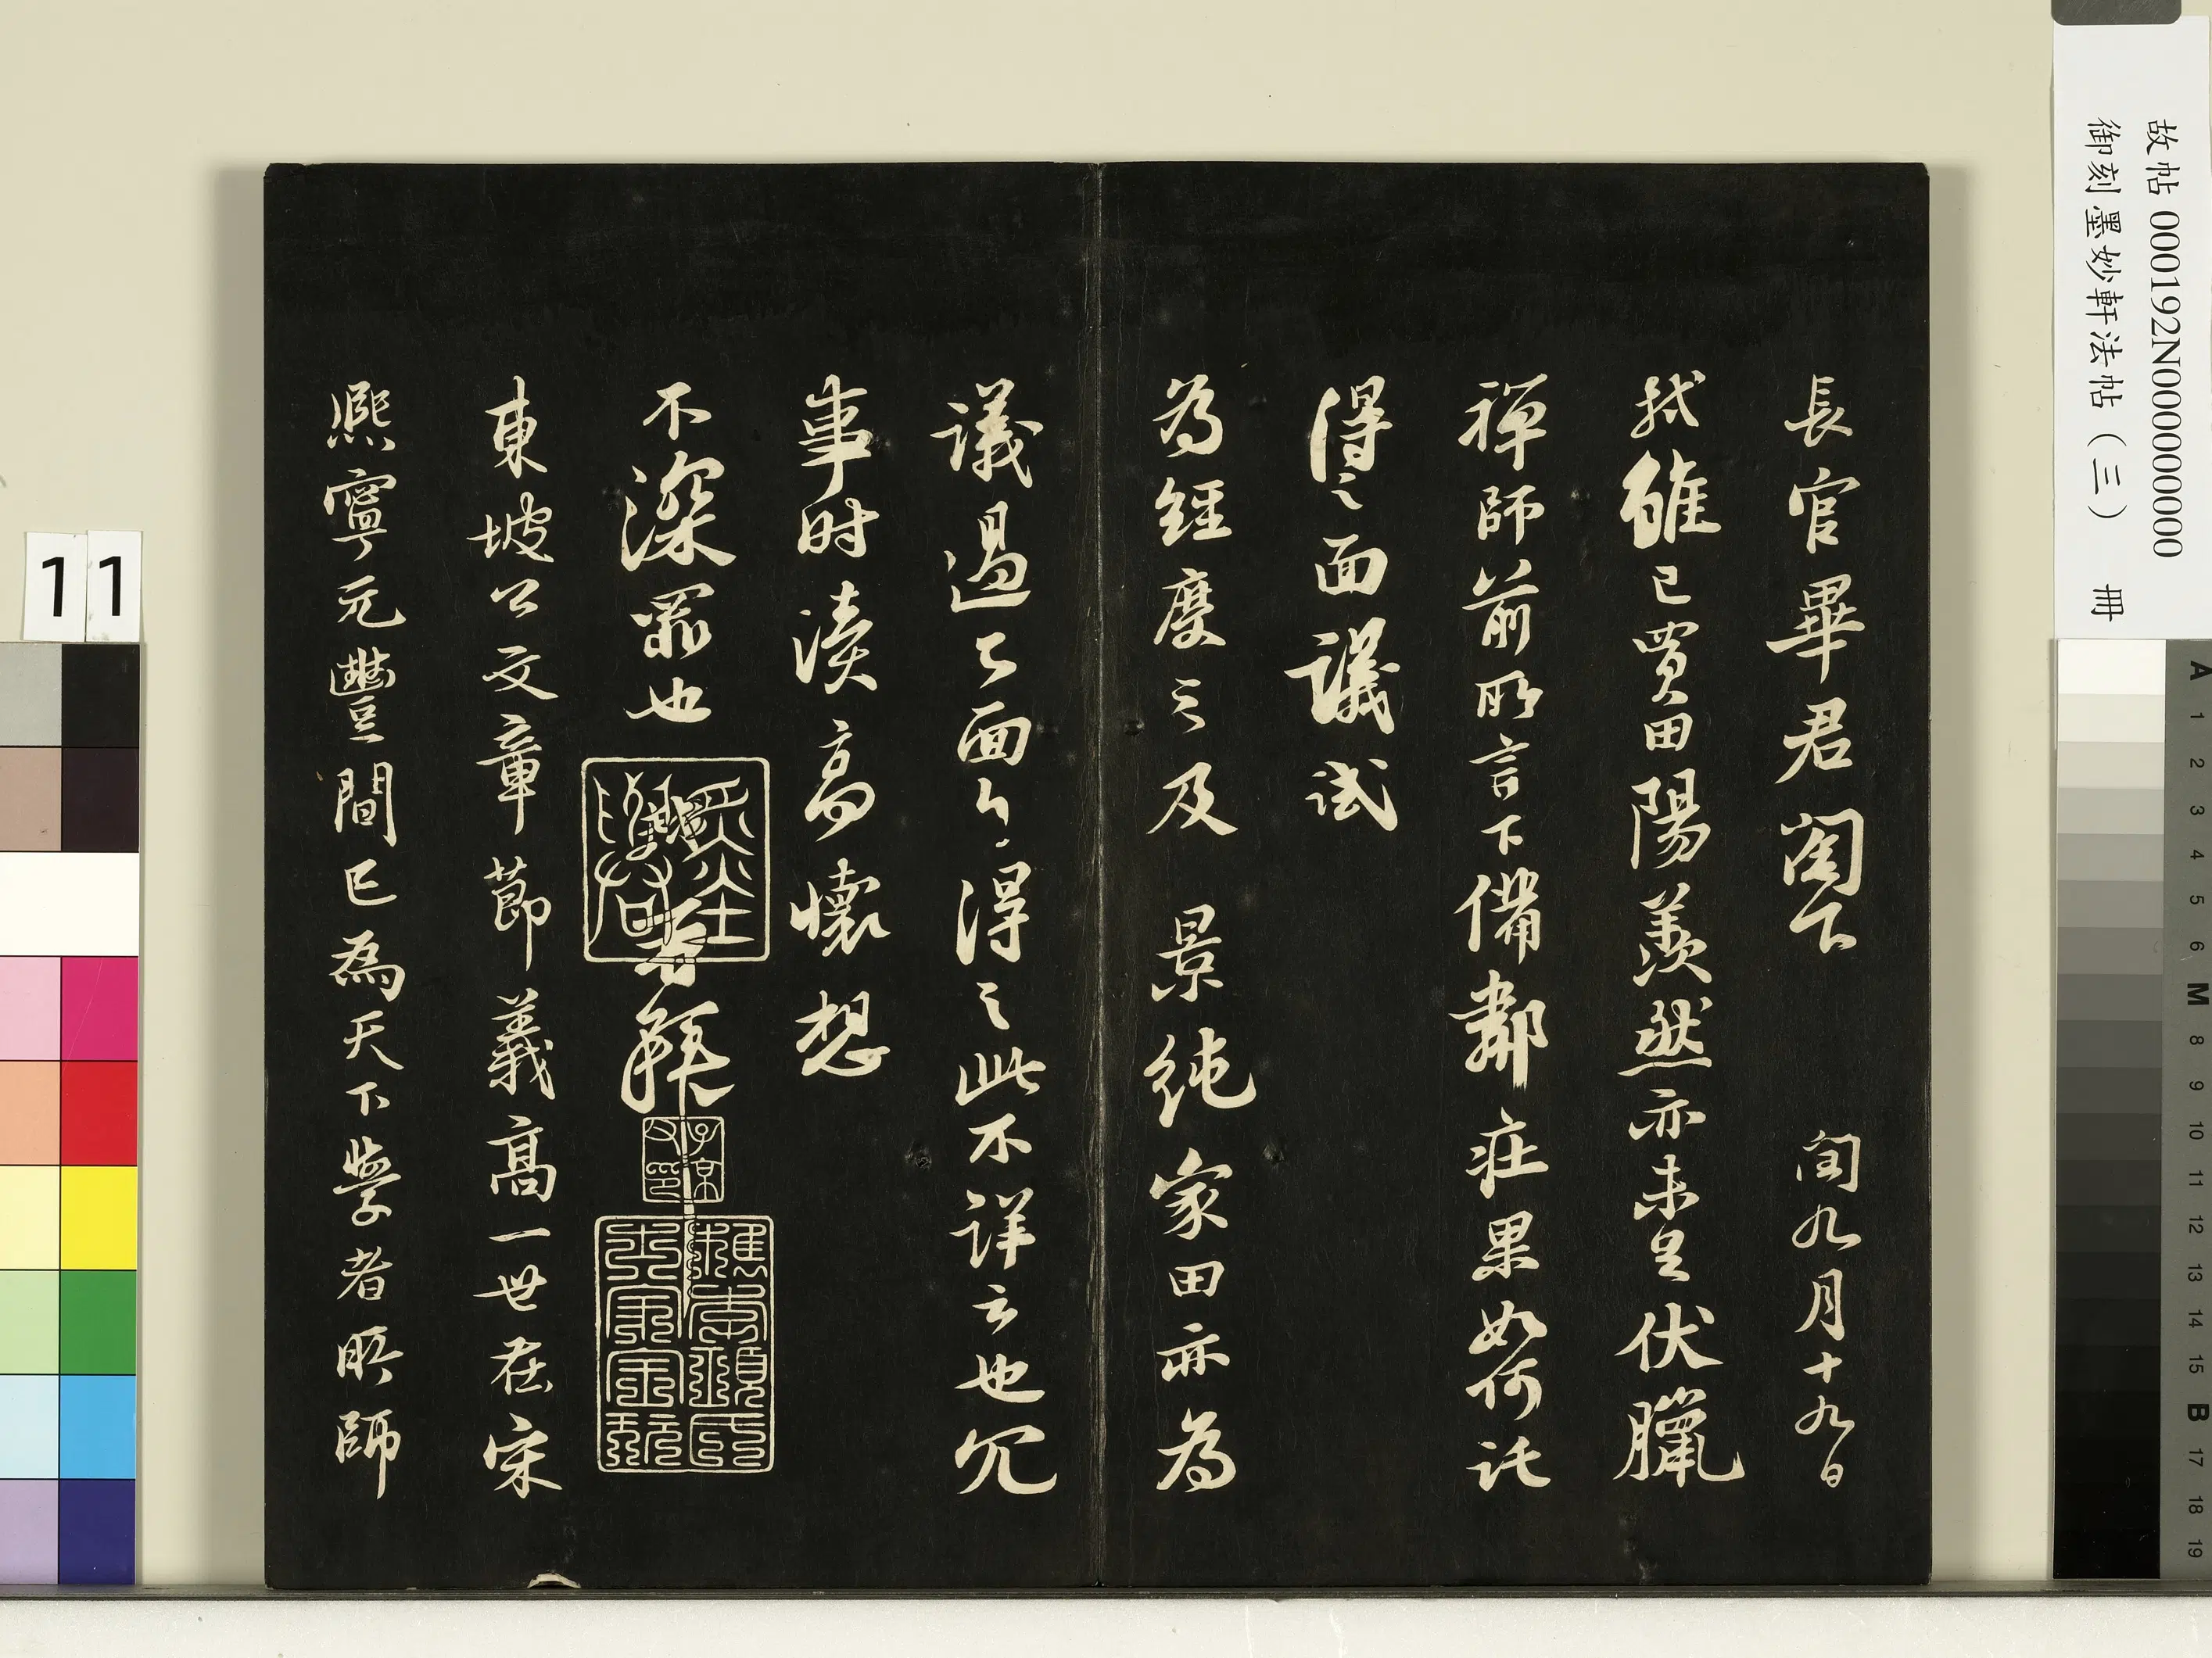 故帖 000192N000000000
御刻墨妙軒法帖（三） 冊
長官畢君閣下 閏九月十九日
軾雖已買田陽羨然亦未足伏臘
禪師前所言下備鄰莊果如何託
得之面議試
為經度之及 景純家田亦為
議過已面白得之此不詳云也冗
事時瀆高懷想
不深罪也 再拜
東坡公文章節義高一世在宋
熙寧元豐間已為天下學者所師
11
A 1 2 3 4 5 6 M 8 9 10 11 12 13 14 15 B 17 18 19